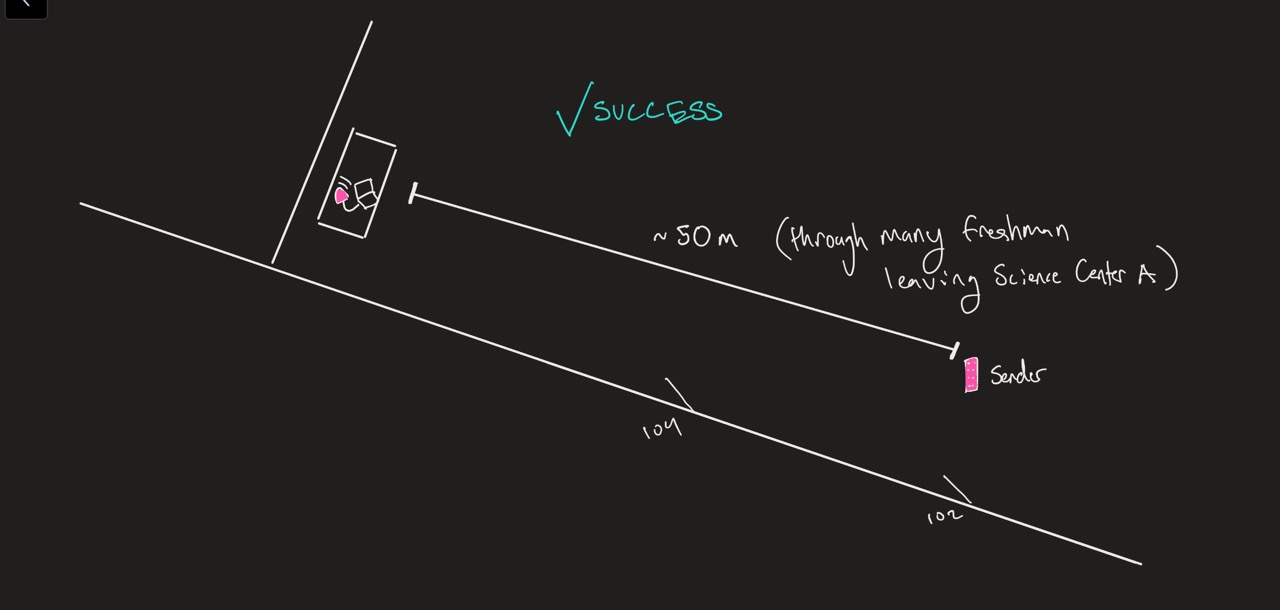 √ SUCCESS
~ 50 m (through many freshman
leaving Science Center A)
Sender
104
102